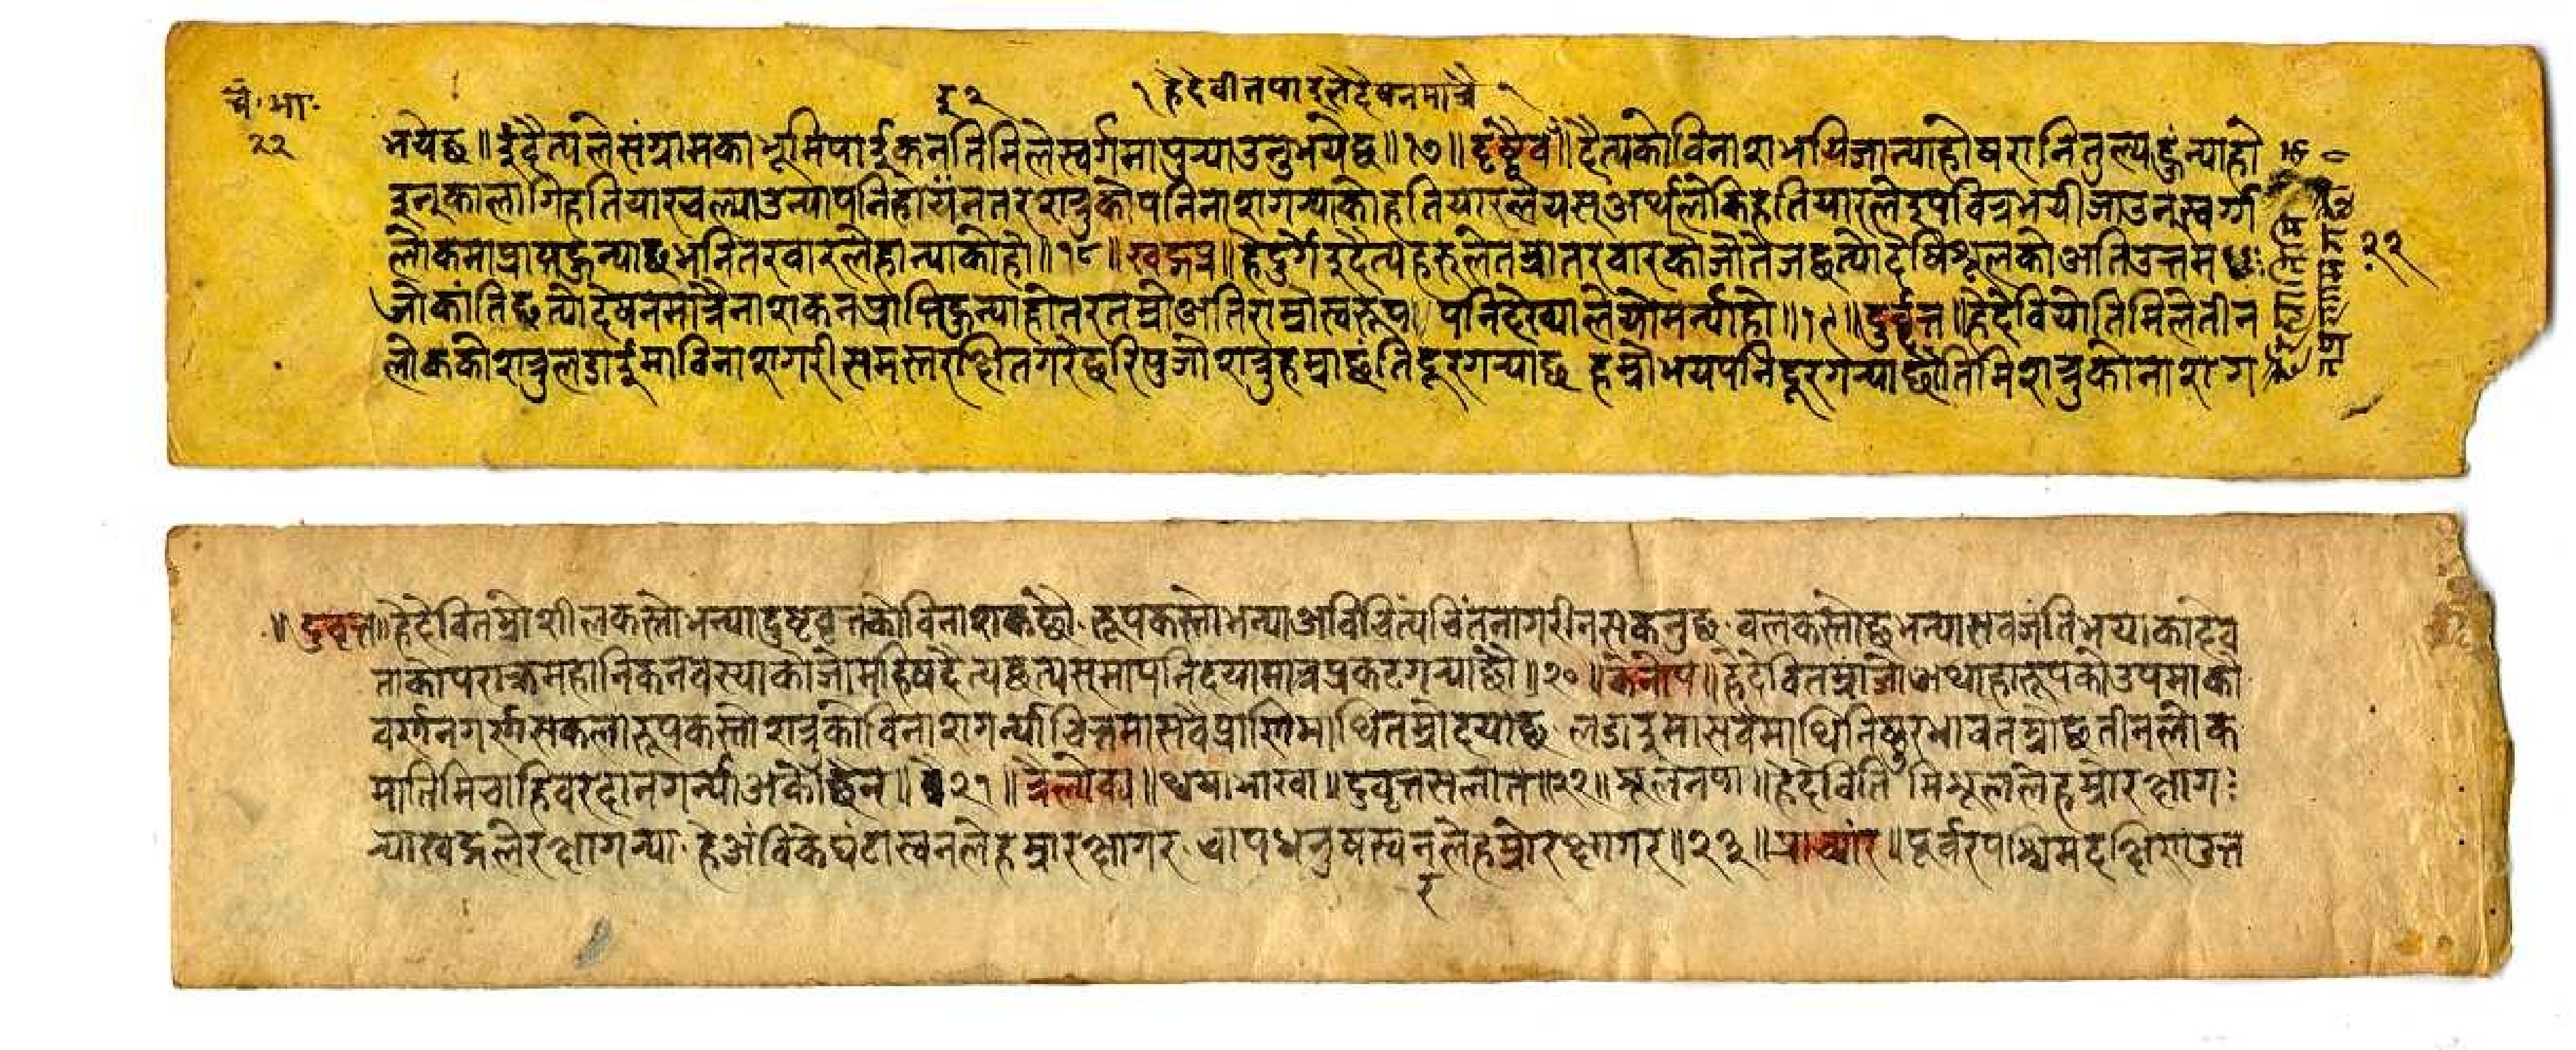 चं. भा.
२२
दु २
१ हेदेवीनपादुलेदेषनमात्रै
भयेछ॥दुंदैत्यलेसंग्रामकाभूमिपार्दुकनतिमिलेस्वर्गमापुर्‍याउनुभयेछ॥१७॥दृष्ट्वैव॥दैत्यकोविनाशभयिजान्याहोषरानितुल्यहुंन्याहो
दुनुकालागिहतियारचल्याउन्यापनिहोयंनतरशत्रुकोपनिनाशगर्‍याकोहतियारलेयसअर्थलेकिहतियारलेदुपवित्रभयीजाउनस्वर्ग
लोकमाप्राप्तहुन्याछभनितरवारलेहान्याकोहो॥१८॥खड्गप्र॥हेदुर्गेदुदैत्यहरुलेतम्रातरवारकोजोतेजछत्योदेषिशूलकोअतिउत्तम
जोकांतिछत्योदेषनमात्रैनाशकनप्राप्तिहुन्याहोतरतम्रोअतिराम्रोस्वरूप पनिदेख्यालेयोमर्न्याहो॥१९॥दुर्वृत्त॥हेदेवियोतिमिलेतीन
लोककोशत्रुलडाइंमाविनाशगरीसमस्तरक्षितगरेछरिपुजोशत्रुहम्राछंतिदूरगर्‍याछ हम्रोभयपनिदूरगर्‍याछौतिमिशत्रुकोनाशग
२२
॥दुवृत्त॥हेदेवितम्रोशीलकस्तोभन्यादुष्टवृत्तकोविनाशकछौ रूपकस्तोभन्याअविचिंत्यचिंतनागरीनसकनुछ वलकस्तोछभन्यासवजंतिभयाकादेव
ताकोपराक्रमहानिकनवस्याकोजोमहिषदैत्यछत्यसमापनिदयामात्रप्रकटगर्‍याछौ॥२०॥केनोप॥हेदेवितम्राजोअथाहारूपकोउपमाको
वर्णनगर्णसकलारूपकस्तोशत्रुकोविनाशगर्न्याचित्तमासवैप्राणिमाथितम्रोदयाछ लडाइमासवैमाथिनिष्ठुरभावतम्रोछतीनलोक
मातिमिचाहिवरदानगर्न्याअर्कोछैन॥२१॥त्रैलोक्य॥ ॥दुवृत्तसलोत॥२२॥शूलेनपा॥हेदेवितिमिशूललेहम्रोरक्षाग
र्‍याखड्गलेरक्षागर्‍या हेअंविकेघंटास्वनलेहम्रारक्षागर चापधनुषस्वनलेहम्रोरक्षागर॥२३॥प्राच्यांर॥पूर्वरपश्चिमदक्षिणउत्त
र